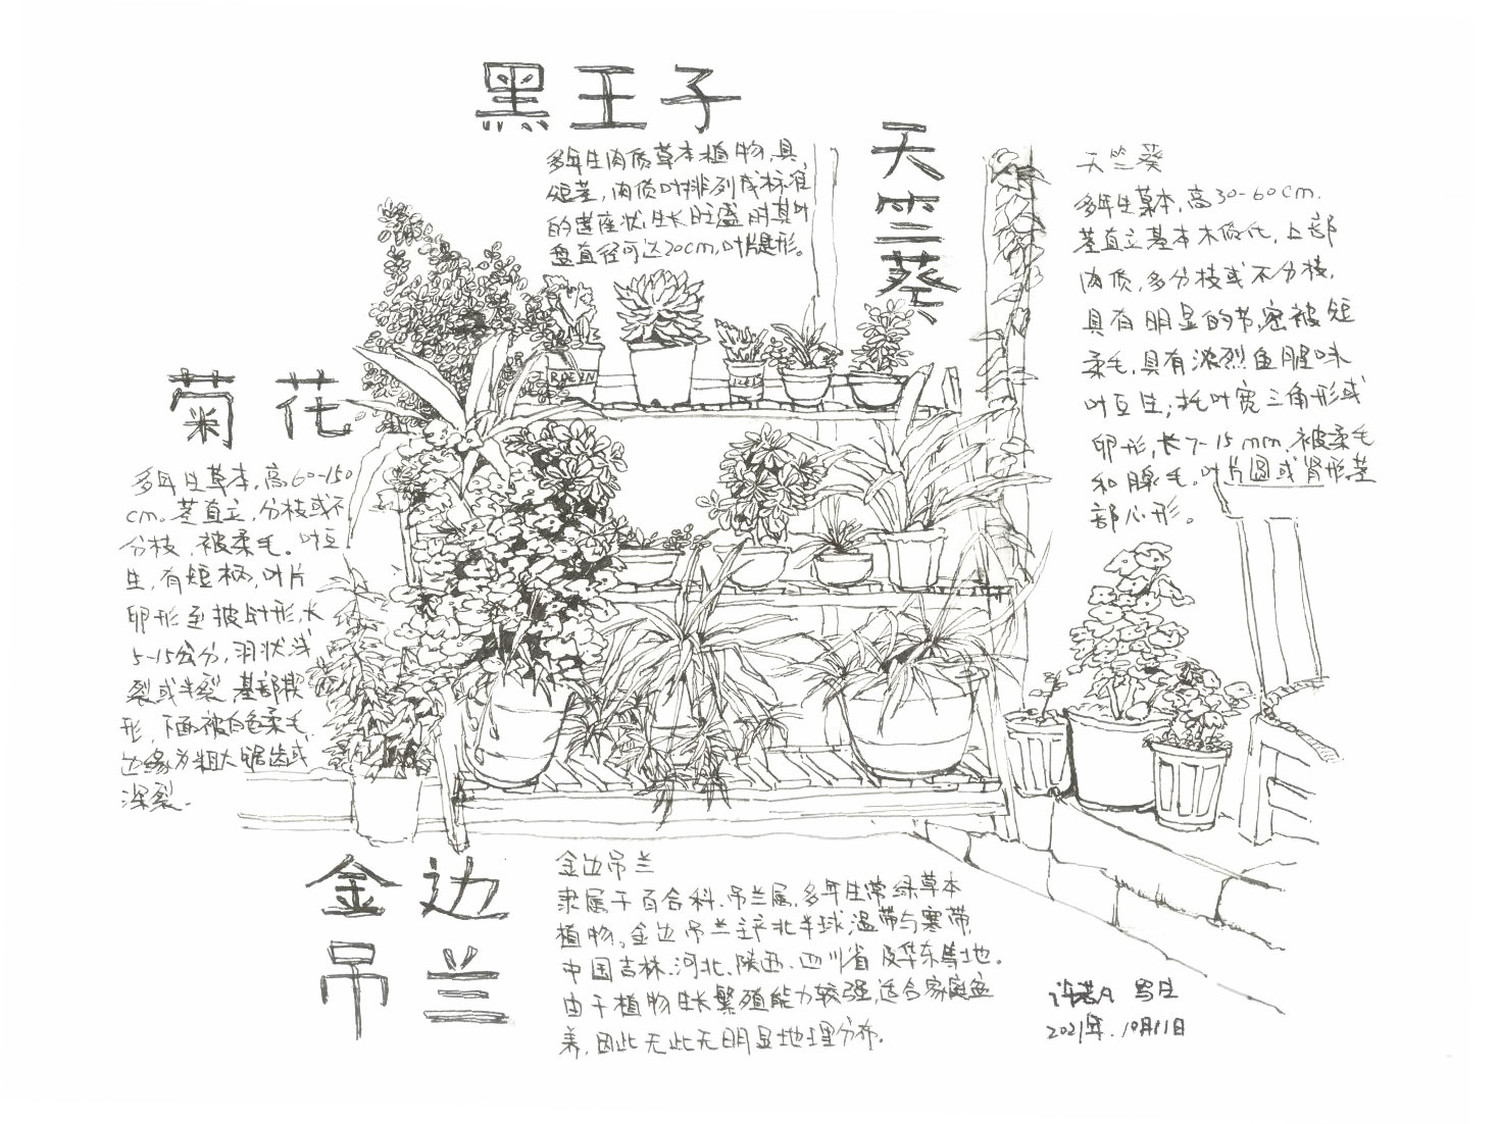 黑王子
多年生肉质草本植物，具
短茎，肉质叶排列成标准
的莲座状，生长旺盛时其叶
盘直径可达20cm，叶片匙形。
天竺葵
天竺葵
多年生草本，高30-60cm.
茎直立基本木质化，上部
肉质，多分枝或不分枝，
具有明显的节，密被短
柔毛，具有浓烈鱼腥味
叶互生；托叶宽三角形或
卵形，长7-15mm，被柔毛
和腺毛。叶片圆或肾形茎
部心形。
菊花
多年生草本，高60-150
cm。茎直立，分枝或不
分枝，被柔毛。叶互
生，有短柄，叶片
卵形至披针形，长
5-15公分，羽状浅
裂或半裂，基部楔
形，下面被白色柔毛，
边缘为粗大锯齿或
深裂.
BREEN
金边
吊兰
金边吊兰
隶属于百合科、吊兰属，多年生常绿草本
植物。金边吊兰主产北半球，温带与寒带，
中国吉林、河北、陕西、四川省及华东等地。
由于植物生长繁殖能力较强，适合家庭盆
养，因此无此无明显地理分布。
许诺凡 写生
2021年.10月11日